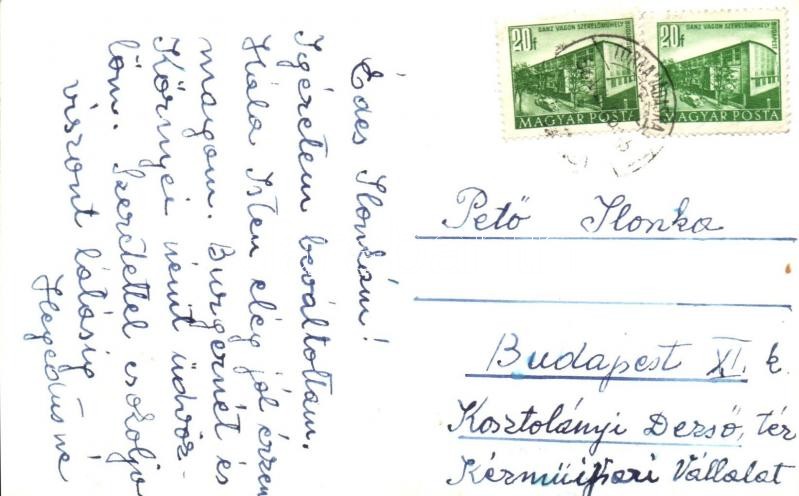 Édes Ilonkám!
Igéretem beváltottam,
Hála Isten elég jól érzem
magam. Burgernét és
Környei nénit üdvöz-
löm. Szeretettel csókolja
viszont látásig
Hegedüsné
GANZ VAGON SZERELŐMŰHELY BUDAPEST
20f
MAGYAR POSTA
GANZ VAGON SZERELŐMŰHELY BUDAPEST
20f
MAGYAR POSTA
Pető Ilonka
Budapest XI. k.
Kosztolányi Dezső, tér
Kézműipari Vállalat